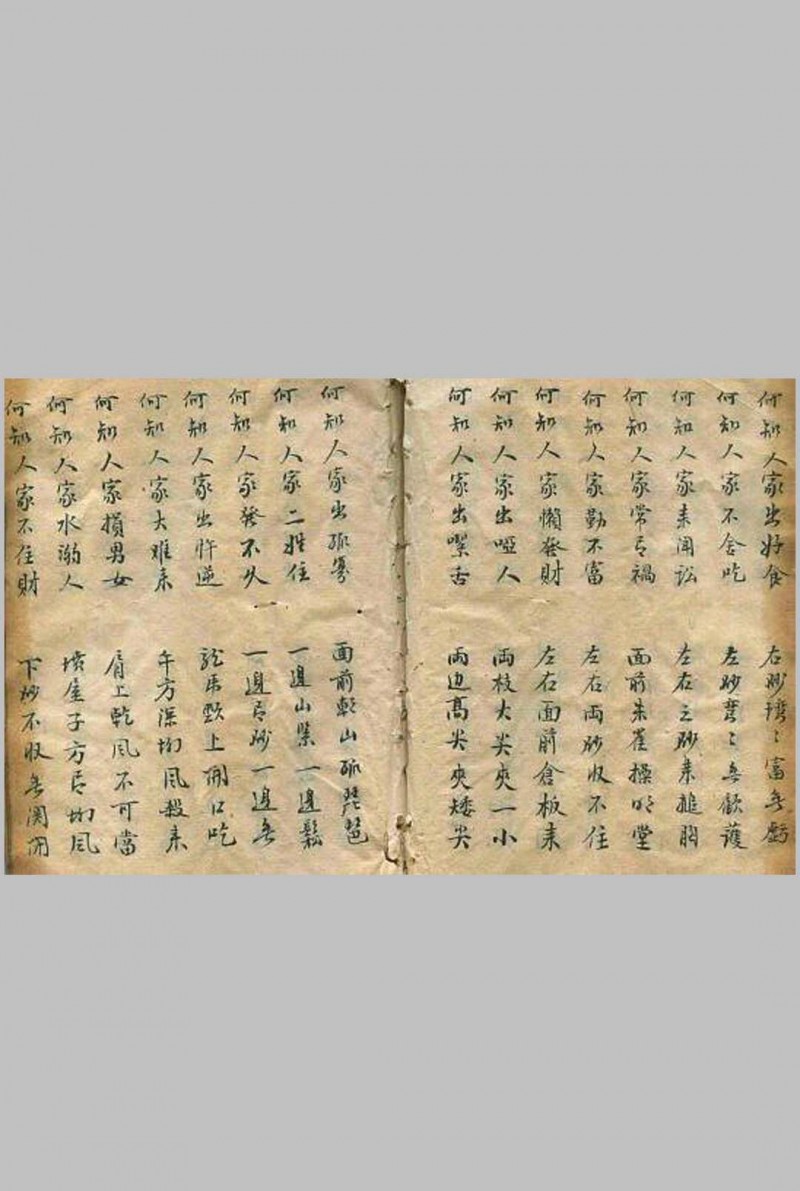 何知人家出好食 右砂灣〻富無虧
何知人家不舍吃 左砂灣〻無歡護
何知人家來闹訟 左右之砂来搥胸
何知人家常㠯禍 面前朱雀操明堂
何知人家勤不富 左右両砂收不住
何知人家懶發財 左右面前倉板来
何知人家出啞人 両枝大尖夾一小
何知人家出嘿舌 両边高尖夾矮尖
何知人家出孤寡 面前山孤琵琶
何知人家二姓住 一邊山緊一邊鬆
何知人家發不久 一邊㠯砂一邊無
何知人家出忤逆 龍虎頸上開口吃
何知人家大难来 午方深坳風殺来
何知人家損男女 肩上乾風不可當
何知人家水溺人 墳屋子方㠯坳風
何知人家不住財 下砂不收無関闹